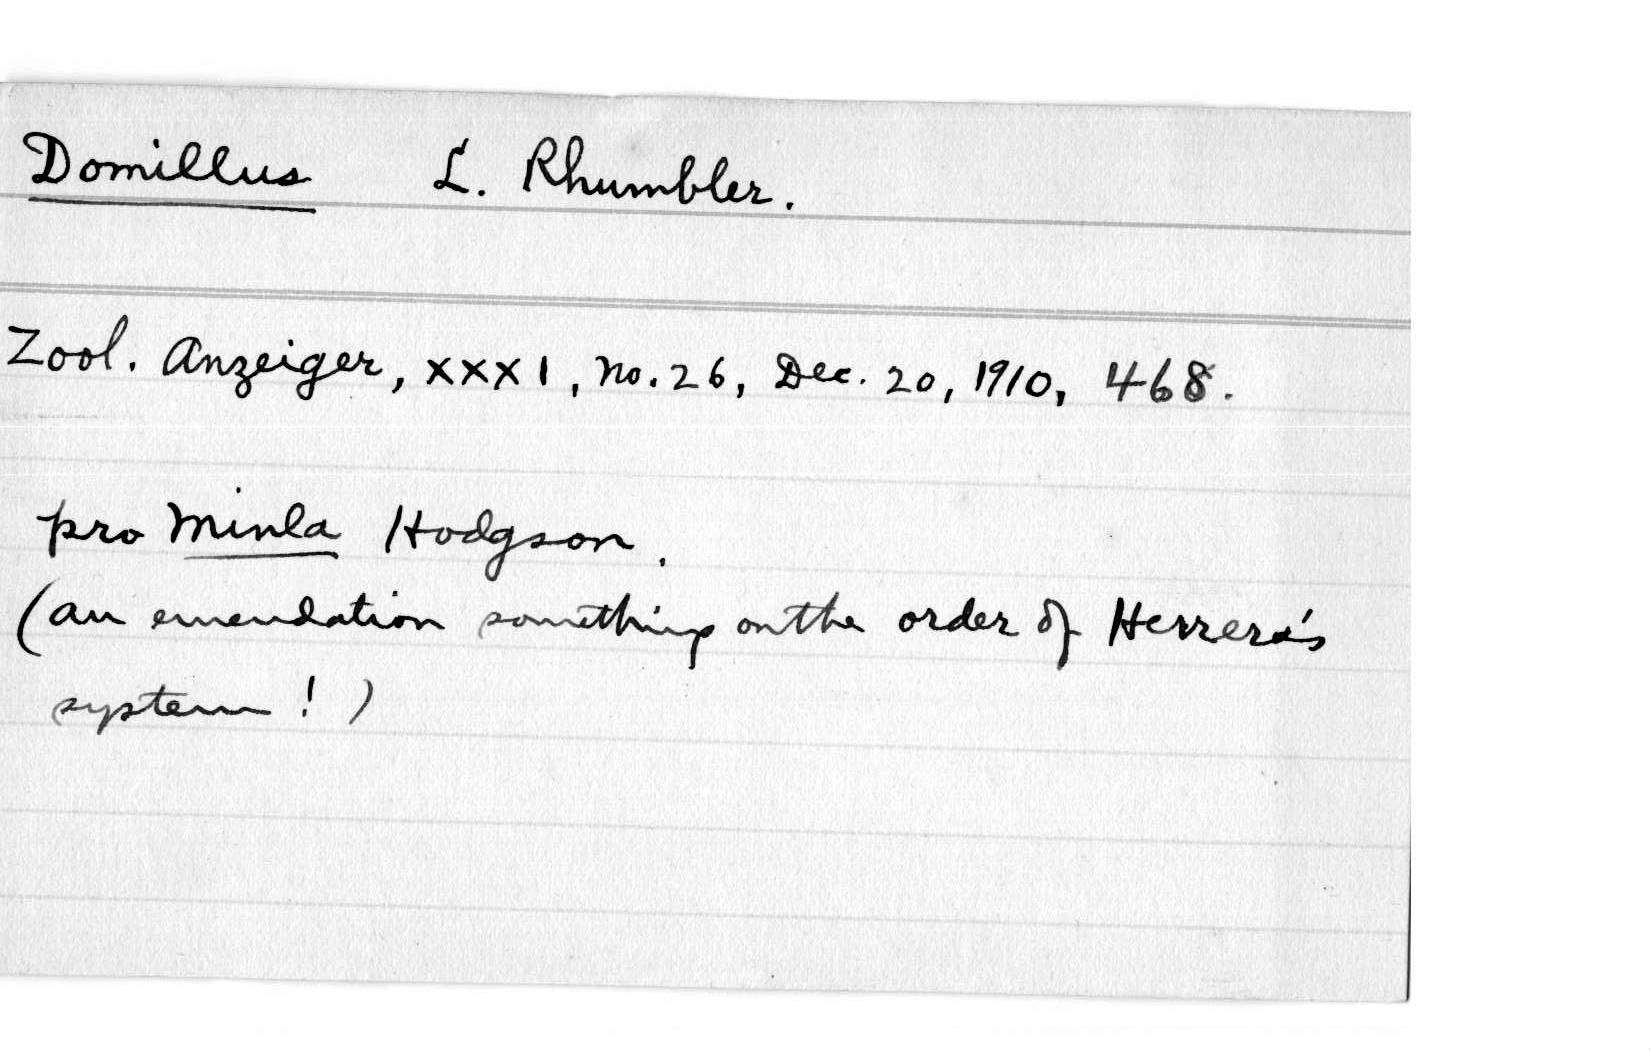 Domillus L. Rhumbler.
Zool. Anzeiger, XXXI, No. 26, Dec. 20, 1910, 468.
pro Minla Hodgson.
(an emendation something on the order of Herrera's
system! )